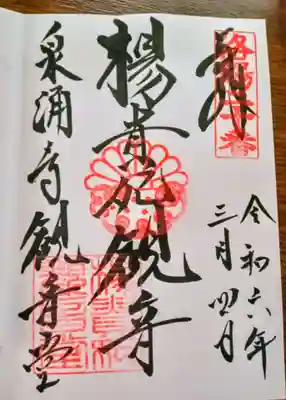 奉拝
洛陽二十番
令和六年
三月四日
楊貴妃観音
泉涌寺観音堂